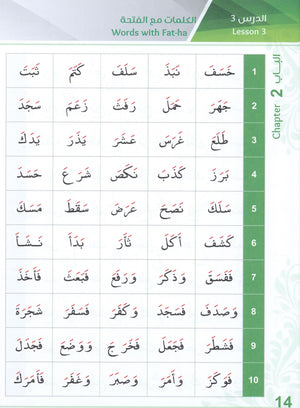 الكلمات مع الفتحة
الدرس 3
Words with Fat-ha
Lesson 3
الباب
Chapter 2
1 خَسَفَ نَبَذَ سَلَفَ كَتَمَ ثَبَتَ
2 جَهَرَ حَمَلَ رَفَثَ زَعَمَ سَجَدَ
3 طَلَعَ غَرَسَ عَشَرَ يَذَرَ يَدَكَ
4 بَرَزَ كَذَبَ نَكَصَ شَرَعَ حَسَدَ
5 سَلَكَ نَصَحَ عَرَضَ سَقَطَ مَسَكَ
6 كَشَفَ أَكَلَ ثَأَرَ بَدَأَ نَشَأَ
7 فَفَسَقَ وَذَكَرَ وَرَفَعَ فَبَعَثَ فَأَخَذَ
8 وَصَدَفَ فَسَجَدَ وَكَفَرَ فَسَفَرَ شَجَرَةَ
9 فَشَطَرَ فَجَعَلَ فَخَرَجَ وَوَضَعَ فَجَدَلَ
10 فَوَكَزَ وَأَمَرَ وَصَبَرَ وَغَفَرَ فَأَمَرَكَ
14